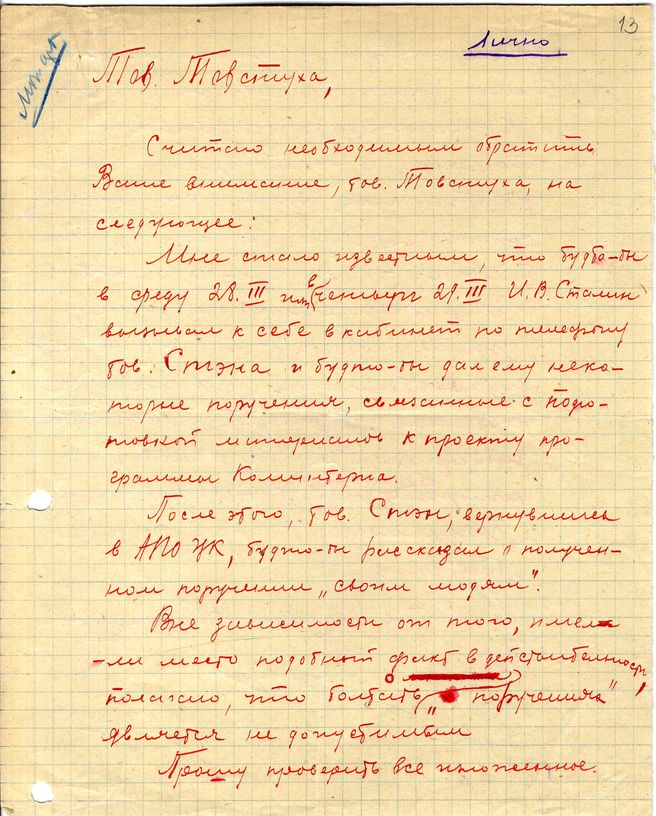 13
Лично
Тов. Товстуха,
Считаю необходимым обратить
Ваше внимание, тов. Товстуха, на
следующее:
Мне стало известным, что будто-бы
в среду 28.III или в четверг 29.III И.В. Сталин
вызывал к себе в кабинет по телефону
тов. Стэна и будто-бы дал ему неко-
торые поручения, связанные с подго-
товкой материалов к проекту про-
граммы Коминтерна.
После этого, тов. Стэн, вернувшись
в АПО ЦК, будто-бы рассказал о получен-
ном поручении „своим людям".
Вне зависимости от того, имел
-ли место подобный факт в действительности,
полагаю, что болтать о „поручениях"
является не допустимым
Прошу проверить все изложенное.